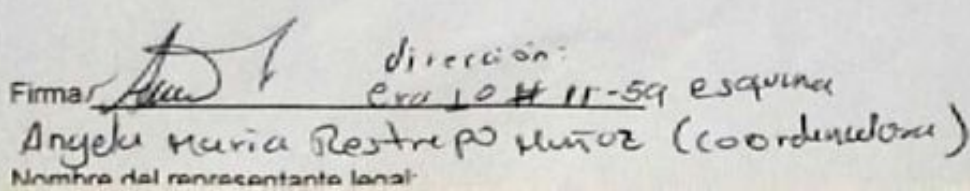 dirección:
Firma: cra 10 # 11-59 esquina
Angela Maria Restrepo Muñoz (coordinadora)
Nombre del representante legal: